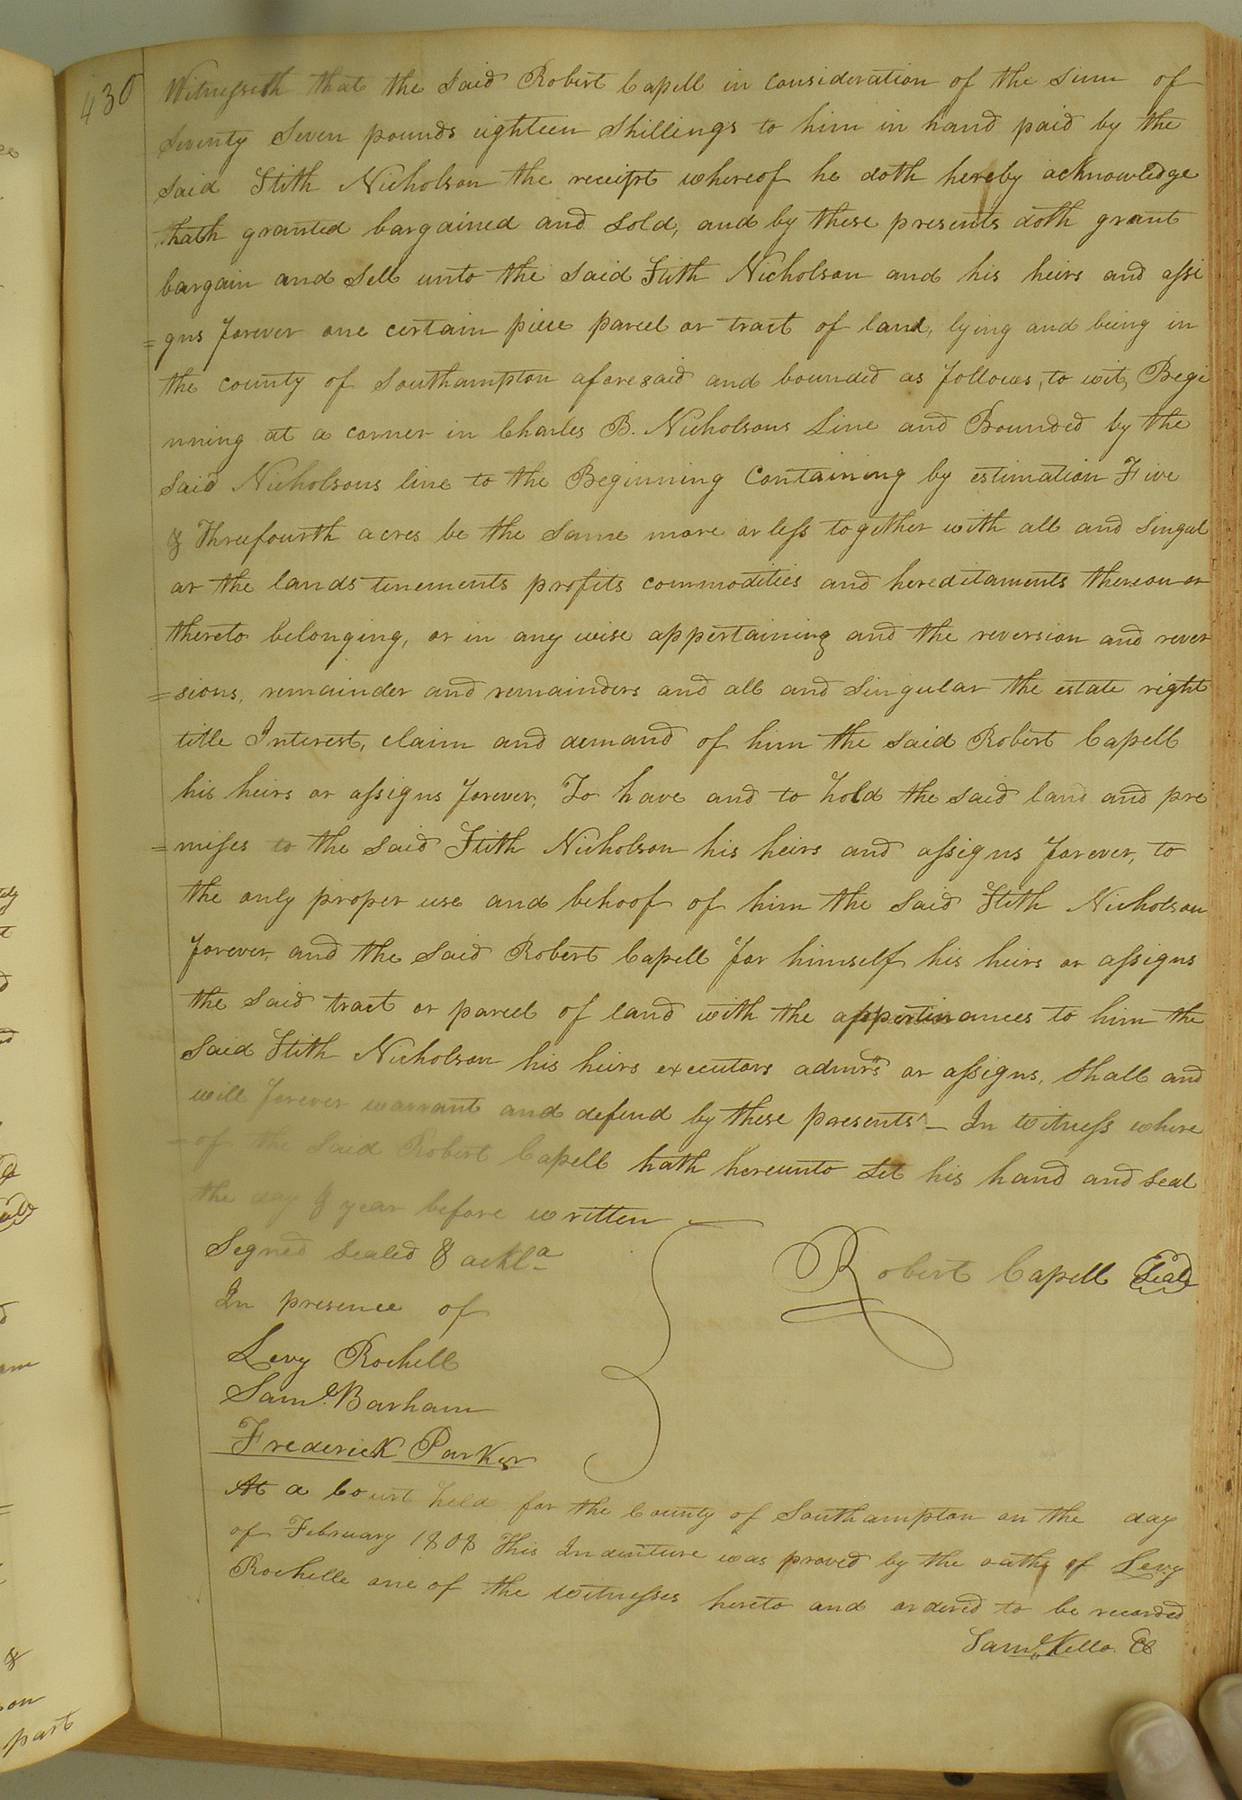 430
Witnesseth that the said Robert Capell in consideration of the sum of
seventy seven pounds eighteen shillings to him in hand paid by the
said Stith Nicholson the receipt whereof he doth hereby acknowledge
hath granted bargained and sold, and by these presents doth grant
bargain and sell unto the said Stith Nicholson and his heirs and assi
=gns forever one certain piece parcel or tract of land, lying and being in
the county of Southampton aforesaid and bounded as follows, to wit, Begi
nning at a corner in Charles B. Nicholsons Line and Bounded by the
said Nicholsons line to the Beginning Containing by estimation Five
& Threefourth acres be the same more or less together with all and Singul
ar the lands tenements profits commodities and hereditaments thereon or
thereto belonging, or in any wise appertaining and the reversion and rever
=sions, remainder and remainders and all and Singular the estate right
title Interest, claim and demand of him the said Robert Capell
his heirs or assigns forever, To have and to hold the said land and pre
=mises to the said Stith Nicholson his heirs and assigns forever, to
the only proper use and behoof of him the said Stith Nicholson
forever, and the said Robert Capell for himself his heirs or assigns
the said tract or parcel of land with the appertinances to him the
said Stith Nicholson his heirs executors admrs or assigns, shall and
will forever warrant and defend by these presents - In witness where
=of the said Robert Capell hath hereunto set his hand and seal
the day & year before written
Segned sealed & ackla
In presence of
Robert Capell Seal
Levy Rochell
Saml. Barham
Frederick Parker
At a Court held for the County of Southampton on the day
of February 1808 This Indenture was proved by the oath of Levy
Rochelle one of the witnesses hereto and ordered to be recorded
Saml Kello. CC
&
on
part